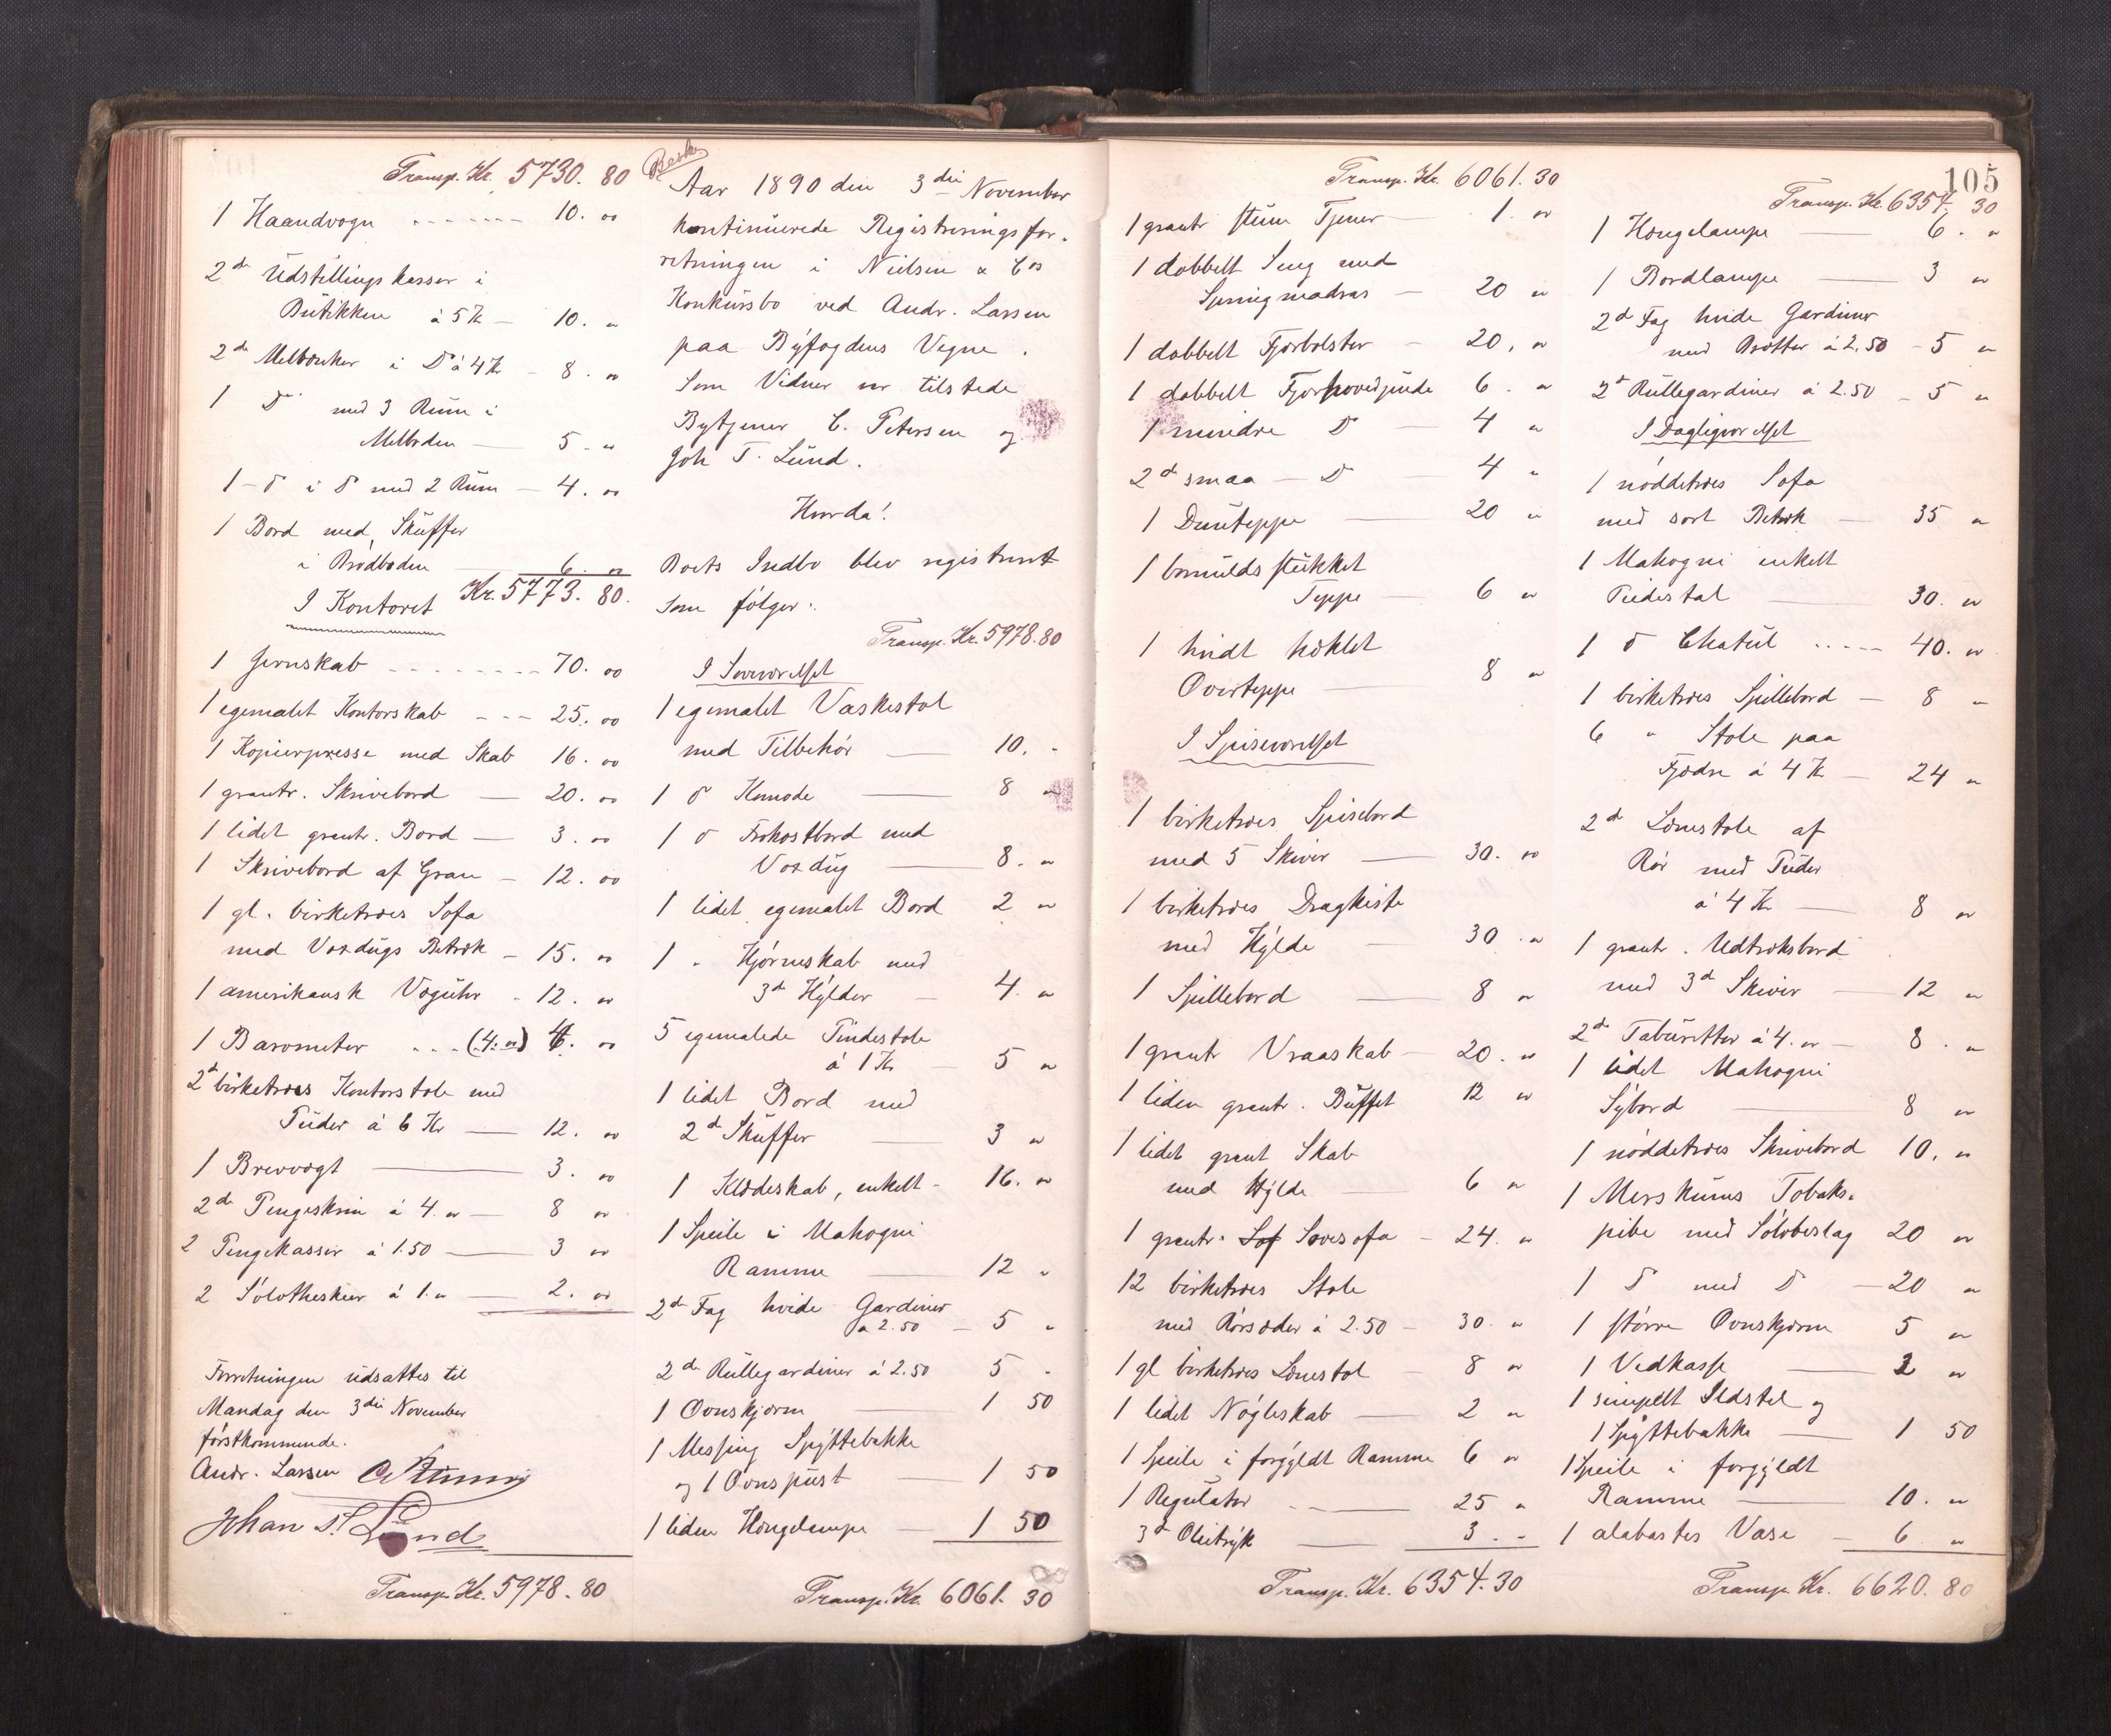 Transp. Kr. 5730. 80
1 Haandvogn - - - - - - 10. oo
2de Udstillingskasser i
Butikken à 5 Kr - 10. "
2de Melbænker i Do à 4 Kr - 8. oo
1 Do med 3 Rum i
Melboden - 5 - "
1 - do i do med 2 Rum - 4. oo
1 Bord med Skuffer
i Brødboden - 6. oo
Kr. 5773. 80.
I Kontoret
1 Jernskab - - - - - - - 70. oo
1 egemalet Kontorskab - - - 25. oo
1 Kopierpresse med Skab 16. oo
1 grantr. Skrivebord - 20. oo
1 lidet grantr. Bord - 3. oo
1 Skrivebord af Gran - 12. oo
1 gl. birketræes Sofa
med Voxdugs Betræk - 15. oo
1 amerikansk Væguhr - 12. oo
1 Barometer - - - (4. oo) 4. oo
2de birketræes Kontorstole med
Puder à 6 Kr - 12. oo
1 Brevvægt - 3. oo
2de Pengeskrin à 4. oo - 8 oo
2 Pengekasser à 1.50 - 3 oo
2 Sølvtheskeer à 1. " - 2. oo
Forretningen udsattes til
Mandag den 3die November
førstkommende.
Andr. Larsen
Johan T. Lund
Transp. Kr. 5978. 80
Besk
Aar 1890 den 3die November
kontinuerede Registreringsfor-
retningen i Nielsen & Cos
Konkursbo ved Andr. Larsen
paa Byfogdens Vegne.
Som Vidner var tilstede
Bytjener C. Petersen og
Joh T. Lund.
Hvorda!
Boets Indbo blev registreret
som følger:
Transp. Kr. 5978.80
I Soveværelset
1 egemalet Vaskestol
med Tilbehør - 10. -
1 do Komode - 8 "
1 do Frokostbord med
Voxdug - 8. "
1 lidet egemalet Bord 2 "
1 " Hjørneskab med
3de Hylder - 4. "
5 egemalede Pindestole
à 1 Kr - 5 "
1 lidet Bord med
2de Skuffer - 3 "
1 Klædeskab, enkelt - 16. "
1 Speile i Mahogni
Ramme - 12 "
2de Fag hvide Gardiner
à 2.50 - 5 "
2de Rullegardiner à 2.50 5 -
1 Ovnskjærm - 1 50
1 Messing Spyttebakke
og 1 Ovnspust - 1 50
1 liden Hængelampe - 1 50
Transp. Kr. 6061. 30
Transp. Kr. 6061. 30
1 grantr stum Tjener - 1. "
1 dobbelt Seng med
Springmadras - 20 "
1 dobbelt Fjærbolster - 20. "
1 dobbelt Fjærhovedpude 6. "
1 mindre Do - 4 "
2de smaa - Do - 4 "
1 Dunteppe - 20 "
1 bomulds stukket
Teppe - 6 "
1 hvidt hæklet
Overteppe - 8 "
I Spiseværelset
1 birketræes Spisebord
med 5 Skiver - 30. oo
1 birketræes Dragkiste
med Hylde - 30. "
1 Spillebord - 8 "
1 grantr Vraaskab - 20. "
1 liden grantr. Buffet 12 "
1 lidet grant Skab
med Hylde - 6 "
1 grantr. Sof Sovesofa - 24. "
12 birketræes Stole
med Rørsæder à 2.50 - 30. "
1 gl birketræes Lænestol - 8 "
1 lidet Nøgleskab - 2 "
1 Speile i forgyldt Ramme 6 "
1 Regulator - - - 25 "
3de Olietryk - 3. -
Transp. Kr. 6354. 30
105
Transp. Kr. 6354. 30
1 Hængelampe - 6. "
1 Bordlampe - 3 "
2de Fag hvide Gardiner
med Brætter à 2.50 - 5 "
2de Rullegardiner à 2.50 - 5 "
I Dagligværelset
1 nøddetræes Sofa
med sort Betræk - 35 "
1 Mahogni enkelt
Piedestal - 30. "
1 do Chatul - - - - - 40. "
1 birketræes Spillebord - 8 "
6 " Stole paa
Fjædre à 4 Kr - 24 "
2de Lænestole af
Rør med Puder
à 4 Kr - 8 "
1 grantr. Udtræksbord
med 3de Skiver - 12 "
2de Taburetter à 4. " - 8. "
1 lidet Mahogni
Sybord - 8 "
1 nøddetræes Skrivebord 10. "
1 Merskums Tobaks-
pibe med Sølvbeslag 20 "
1 do med Do - 20 "
1 større Ovnskjærm 5 "
1 Vedkasse - 2 "
1 simpelt Ildstel og
1 Spyttebakke - 1 50
1 Speile i forgyldt
Ramme - 10. "
1 alabastes Vase - 6 "
Transp. Kr. 6620. 80